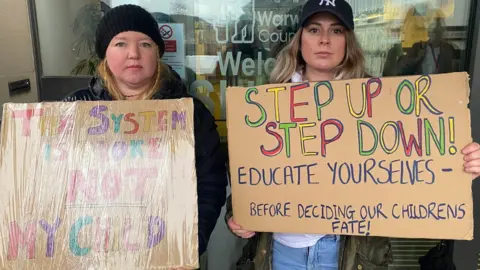 Warw
Cour
Welco
NY
THE SYSTEM
IS BROKE
NOT
MY CHILD
STEP UP OR
STEP DOWN!
EDUCATE YOURSELVES -
BEFORE DECIDING OUR CHILDRENS
FATE!